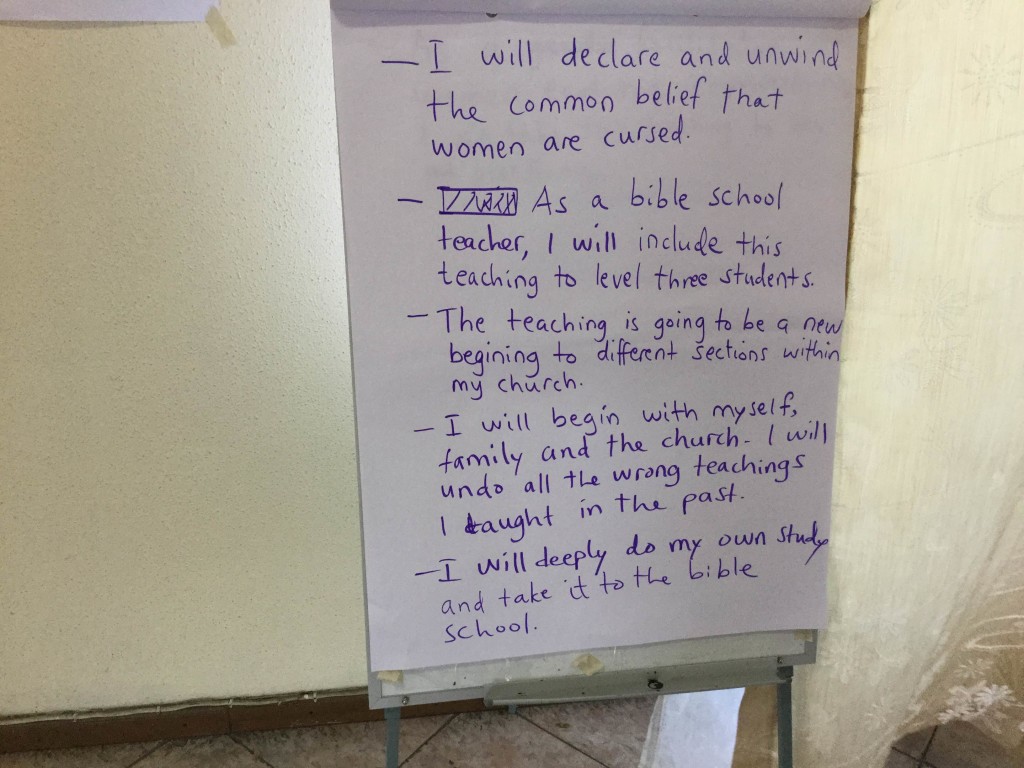 — I will declare and unwind
the common belief that
women are cursed.
— As a bible school
teacher, I will include this
teaching to level three students.
— The teaching is going to be a new
begining to different sections within
my church.
— I will begin with myself,
family and the church. I will
undo all the wrong teachings
I taught in the past.
— I will deeply do my own study
and take it to the bible
school.